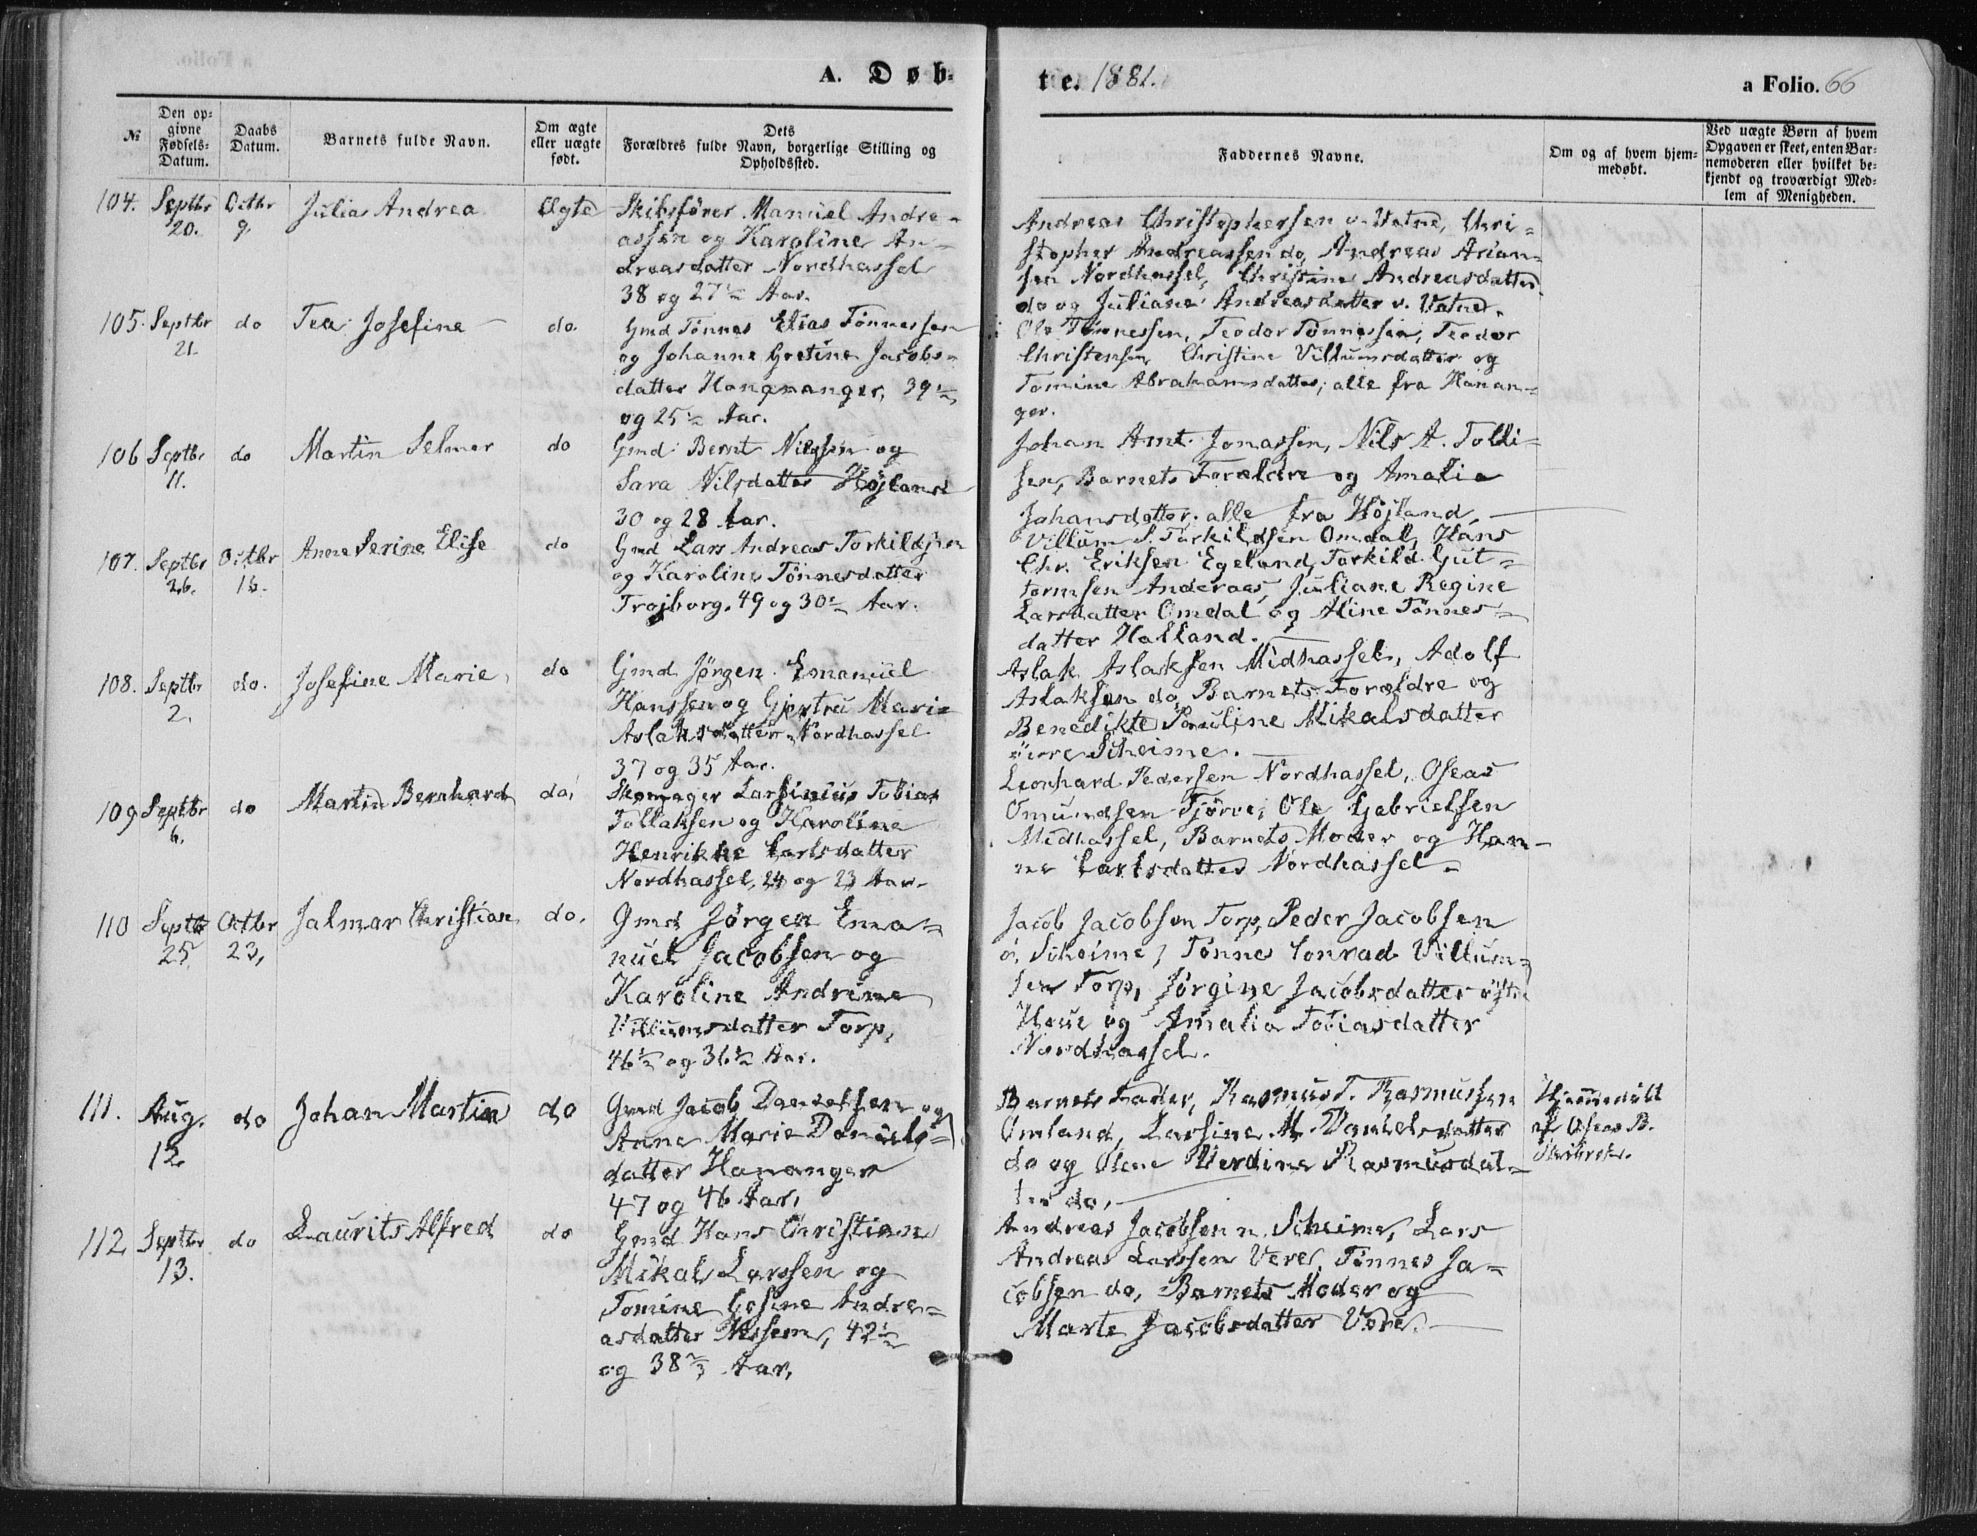 A. Døb-
te. 1881.
a Folio. 66
№
Den op-
givne
Fødsels-
Datum.
Daabs
Datum.
Barnets fulde Navn.
Om ægte
eller uægte
født.
Dets
Forældres fulde Navn, borgerlige Stilling og
Opholdssted.
Faddernes Navne.
Om og af hvem hjem-
medøbt.
Ved uægte Børn af hvem
Opgaven er skeet, enten Bar-
nemoderen eller hvilket be-
kjendt og troværdigt Med-
lem af Menigheden.
104. Septbr 20. Octbr 9. Julia Andrea Ægte
Skibsfører Manuel Andre-
assen og Karoline An-
dreasdatter Nordhassel
38 og 27 1/2 Aar.
Andreas Christophersen v. Vatne, Chri-
stopher Andreassen do, Andreas Arian-
sen Nordhassel, Christine Andreasdatter
do og Juliane Andreasdatter v. Vatne.
105. Septbr 21. do Tea Josefine do.
Gmd Tønnes Elias Tønnessen
og Johanne Gretine Jacobs-
datter Hananger, 39 1/2
og 25 1/2 Aar.
Ole Tønnessen, Teodor Tønnessen, Teodor
Christensen, Christine Villumsdatter og
Tomine Abrahamsdatter, alle fra Hanan-
ger.
106 Septbr 11. do Martin Selmer do
Gmd Bernt Nilssen og
Sara Nilsdatter Højland
30 og 28 Aar.
Johan Amt. Jonassen, Nils A. Tolli-
sen, Barnets Forældre og Amalia
Johansdatter, alle fra Højland,
107. Septbr 26. Octbr 16. Anne Serine Elise do
Gmd Lars Andreas Torkildsen
og Karoline Tønnesdatter
Trojborg. 49 og 30 1/2 Aar.
Villum S. Torkildsen Omdal, Hans
Chr. Eriksen Egeland, Torkild Gut-
tormsen Anderaas, Juliane Regine
Larsdatter Omdal og Aline Tønnes-
datter Halland.
108. Septbr 2. do. Josefine Marie, do
Gmd Jørgen Emanuel
Hanssen og Gjertru Marie
Aslaksdatter Nordhassel
37 og 35 Aar.
Aslak Aslaksen Midhassel, Adolf
Aslaksen do Barnets Forældre og
Benedikte Pauline Mikalsdatter
Skeime.
109 Septbr 6. do Martin Bernhard do.
Skomager Larsinius Tobias
Tollaksen og Karoline
Henrikke Carlsdatter
Nordhassel, 24 og 23 Aar.
Leonhard Pedersen Nordhassel, Oseas
Omundsen Tjørve, Ole Gabrielsen
Midhassel, Barnets Moder og Han-
ne Carlsdatter Nordhassel
110 Septbr 25. Octbr 23, Jalmar Christian do.
Gmd Jørgen Ema-
nuel Jacobsen og
Karoline Andrine
Villumsdatter Torp,
46 1/2 og 36 1/2 Aar.
Jacob Jacobsen Torp, Peder Jacobsen
ø. Skeime, Tønnes Conrad Villum-
sen Torp, Jørgine Jacobsdatter østre
Haue og Amalia Tobiasdatter
Nordhassel.
111. Aug. 12. do Johan Martin do
Gmd Jacob Danielsen og
Anne Marie Daniels-
datter Hananger
47 og 46 Aar,
Barnets Fader, Rasmus T. Rasmussen
Omland, Larsine M. Danielsdatter
do og Olene Verdine Rasmusdat-
ter do,
Hjemmedøbt
af Oseas B.
112 Septbr 13. do Laurits Alfred do
Gmd Hans Christian
Mikal Larssen og
Tomine Gesine Andre-
asdatter Nessem, 42 1/2
og 38 2/3 Aar,
Andreas Jacobsen n. Skeime, Lars
Andreas Larssen Vere, Tønnes Ja-
cobsen do, Barnets Moder og
Marte Jacobsdatter Vere.